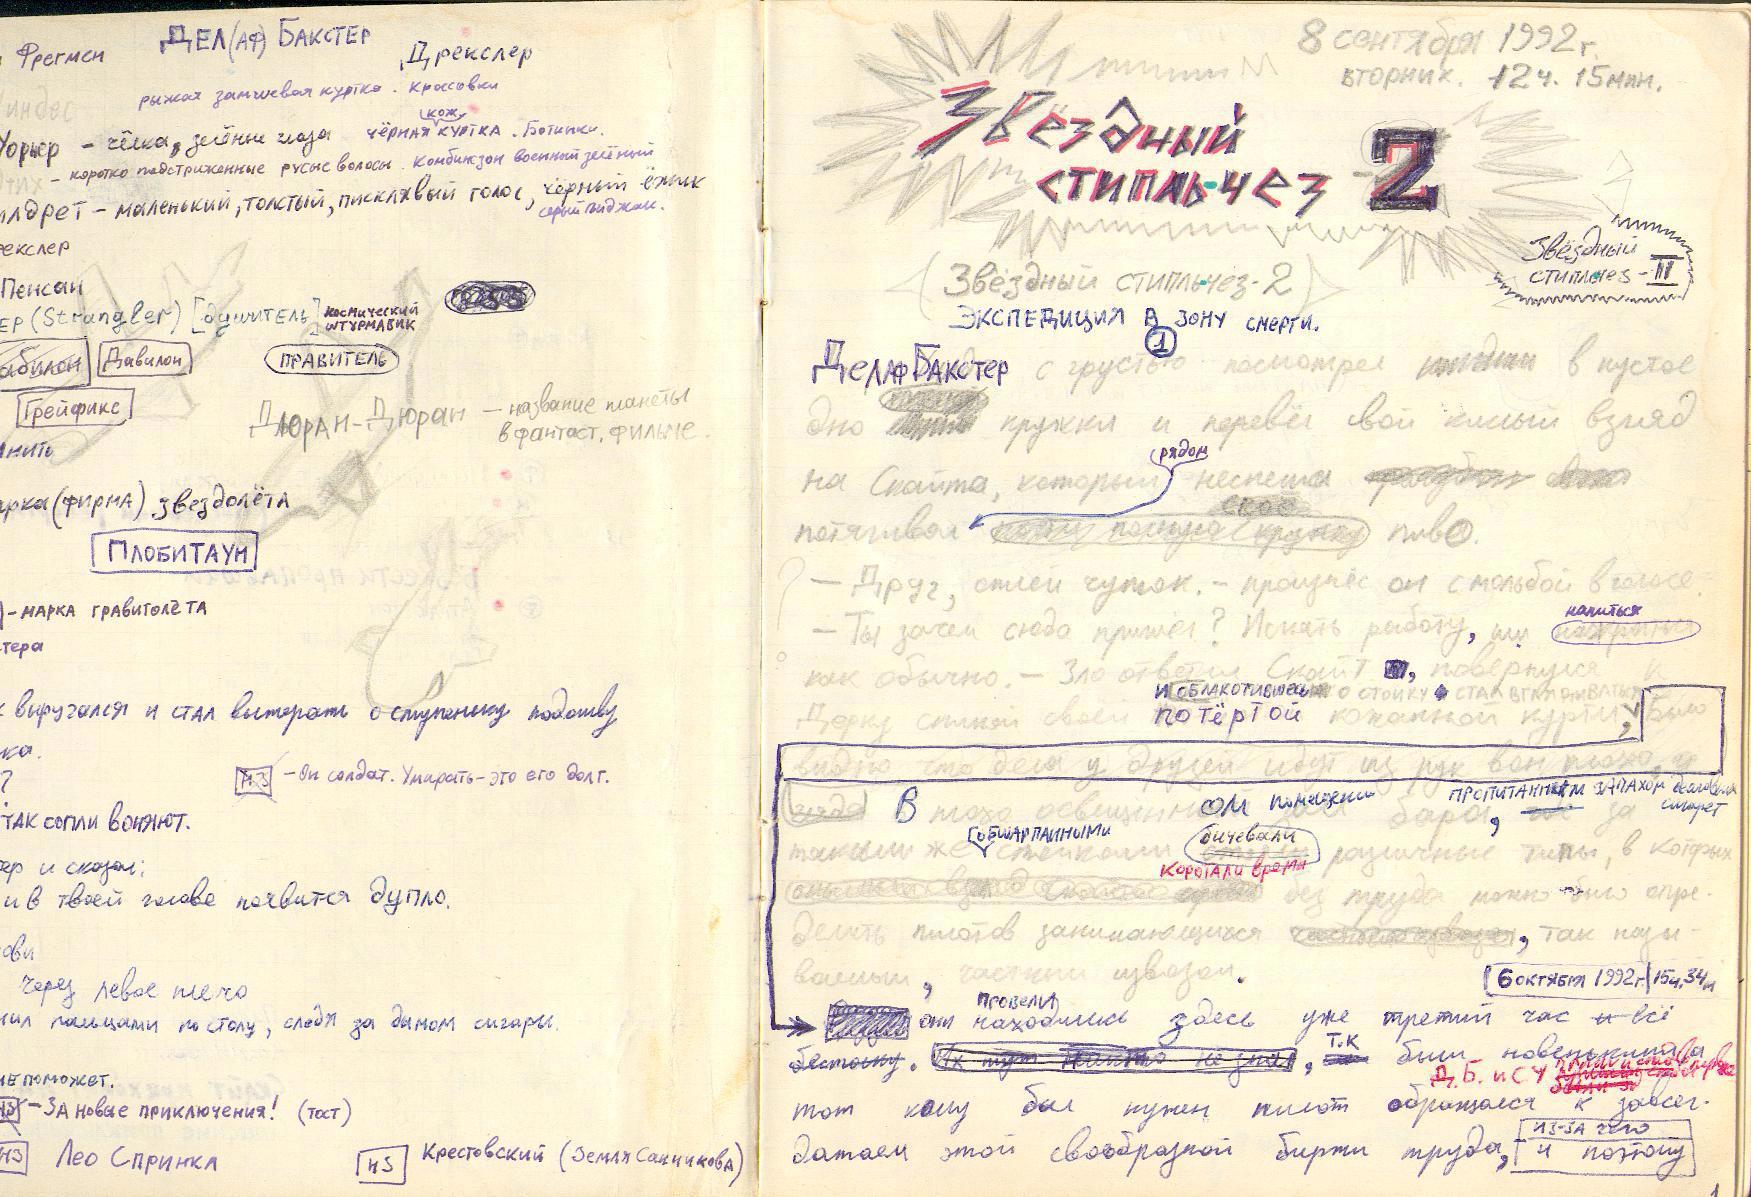 Фрегмен
ДЕЛ(АФ) БАКСТЕР
Дрекслер
рыжая замшевая куртка. Красовки
Уорьер – чёлка, зелёные глаза
кож.
чёрная куртка. Ботинки.
– коротко подстриженные русые волосы. Комбинзон военный зелёный
илдрет – маленький, толстый, писклявый голос, чёрный ёжик
серый пиджак.
екслер
Пенсан
ЕР (Strangler) [душитель] КОСМИЧЕСКИЙ ШТУРМАВИК
абилон Давилон ПРАВИТЕЛЬ
Грейфикс
Дюран-Дюран – название планеты
в фантаст. фильме.
нить
арка (фирма) звездолёта
ПЛОБИТАУН
– МАРКА ГРАВИТОЛЁТА
тера
к выругался и стал вытерать о ступеньку подошву
ка.
?
НЗ – Он солдат. Умирать – это его долг.
ТАК СОПЛИ ВОНЯЮТ.
тер и сказал:
и в твоей голове появится дупло.
ови
через левое плечо
нил пальцами по столу, следя за дымом сигары.
НЕ ПОМОЖЕТ.
НЗ – ЗА НОВЫЕ ПРИКЛЮЧЕНИЯ! (тост)
НЗ Лео Спринка
НЗ Крестовский (Земля Санникова)
8 сентября 1992 г.
вторник. 12 ч. 15 мин.
Звёздный
стипль-чез -2
Звёздный
стипльчез - II
(Звёздный стипль-чез-2)
ЭКСПЕДИЦИЯ В ЗОНУ СМЕРТИ.
1
ДЕЛАФ БАКСТЕР с грустью посмотрел в пустое
дно кружки и перевёл свой кислый взгляд
рядом
на Скайта, который неспеша
своё
потягивал пиво.
– Друг, отлей чуток. – произнёс он с мольбой в голосе.
напиться
– Ты зачем сюда пришёл? Искать работу, или
как обычно. – Зло ответил Скайт, повернулся к
И ОБЛАКОТИВШИСЬ О СТОЙКУ СТАЛ ВГЛЯДЫВАТЬСЯ
Дерку спиной своей ПОТЁРТОЙ кожанной курти, Было
видно что дела у друзей идут из рук вон плохо, и
В плохо освещённом помещении бара, ПРОПИТАННЫМ ЗАПАХОМ дешовых сигарет за
ОБШАРПАННЫМИ
бичевали
такими же стойками различные типы, в которых
коротали время
без труда можно было опре-
делить пилотов занимающихся, так назы-
ваемым, частным извозом.
6 ОКТЯБРЯ 1992 г. 15 ч. 34 м
провели
они находились здесь уже третий час и всё
бестолку. Их тут никто не знал, Т.К были новенькими а
Д.Б. и С.У
тот кому был нужен пилот обращался к завсег-
ИЗ-ЗА чего
датаем этой свообразной биржи труда, и поэтому
1